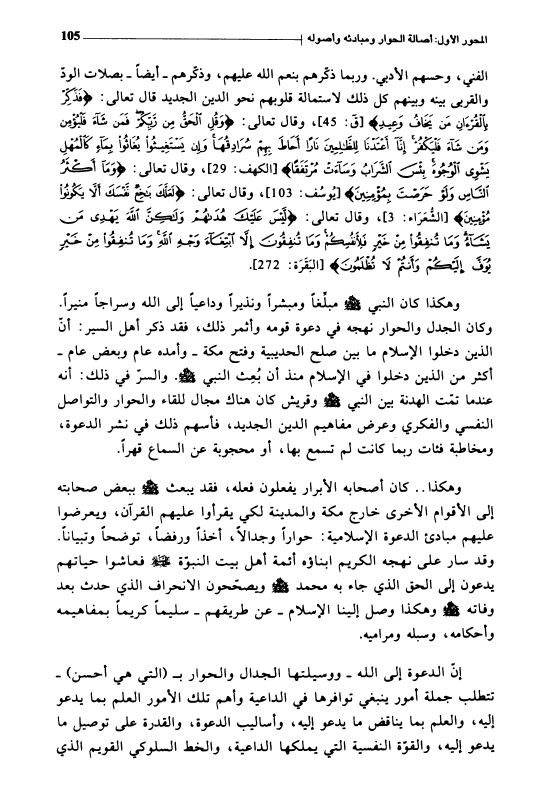 المحور الأول: أصالة الحوار ومبادئه وأصوله 105
الفني، وحسهم الأدبي. وربما ذكّرهم بنعم الله عليهم، وذكّرهم ـ أيضاً ـ بصلات الودّ
والقربى بينه وبينهم كل ذلك لاستمالة قلوبهم نحو الدين الجديد قال تعالى: ﴿فَذَكِّرْ
بِالْقُرْءَانِ مَن يَخَافُ وَعِيدِ﴾ [قَ: 45]، وقال تعالى: ﴿وَقُلِ الْحَقُّ مِن رَّبِّكُمْ فَمَن شَآءَ فَلْيُؤْمِن
وَمَن شَآءَ فَلْيَكْفُرْ إِنَّآ أَعْتَدْنَا لِلظَّالِمِينَ نَارًا أَحَاطَ بِهِمْ سُرَادِقُهَا وَإِن يَسْتَغِيثُوا يُغَاثُوا بِمَآءٍ كَالْمُهْلِ
يَشْوِى الْوُجُوهَ بِئْسَ الشَّرَابُ وَسَآءَتْ مُرْتَفَقًا﴾ [الكهف: 29]، وقال تعالى: ﴿وَمَآ أَكْثَرُ
النَّاسِ وَلَوْ حَرَصْتَ بِمُؤْمِنِينَ﴾ [يُوسُف: 103]، وقال تعالى: ﴿لَعَلَّكَ بَاخِعٌ نَّفْسَكَ أَلَّا يَكُونُوا
مُؤْمِنِينَ﴾ [الشُّعَرَاء: 3]، وقال تعالى: ﴿لَّيْسَ عَلَيْكَ هُدَاهُمْ وَلَاكِنَّ اللَّهَ يَهْدِى مَن
يَشَآءُ وَمَا تُنفِقُوا مِنْ خَيْرٍ فَلِأَنفُسِكُمْ وَمَا تُنفِقُونَ إِلَّا ابْتِغَآءَ وَجْهِ اللَّهِ وَمَا تُنفِقُوا مِنْ خَيْرٍ
يُوَفَّ إِلَيْكُمْ وَأَنتُمْ لَا تُظْلَمُونَ﴾ [البَقَرَة: 272].
وهكذا كان النبي ﷺ مبلّغاً ومبشراً ونذيراً وداعياً إلى الله وسراجاً منيراً.
وكان الجدل والحوار نهجه في دعوة قومه وأثمر ذلك، فقد ذكر أهل السير: أنّ
الذين دخلوا الإسلام ما بين صلح الحديبية وفتح مكة ـ وأمده عام وبعض عام ـ
أكثر من الذين دخلوا في الإسلام منذ أن بُعِث النبي ﷺ. والسرّ في ذلك: أنه
عندما تمّت الهدنة بين النبي ﷺ وقريش كان هناك مجال للقاء والحوار والتواصل
النفسي والفكري وعرض مفاهيم الدين الجديد، فأسهم ذلك في نشر الدعوة،
ومخاطبة فئات ربما كانت لم تسمع بها، أو محجوبة عن السماع قهراً.
وهكذا.. كان أصحابه الأبرار يفعلون فعله، فقد يبعث ﷺ ببعض صحابته
إلى الأقوام الأخرى خارج مكة والمدينة لكي يقرأوا عليهم القرآن، ويعرضوا
عليهم مبادئ الدعوة الإسلامية: حواراً وجدالاً، أخذاً ورفضاً، توضحاً وتبياناً.
وقد سار على نهجه الكريم ابناؤه أئمة أهل بيت النبوّة فعاشوا حياتهم
يدعون إلى الحق الذي جاء به محمد ﷺ ويصحّحون الانحراف الذي حدث بعد
وفاته ﷺ وهكذا وصل إلينا الإسلام ـ عن طريقهم ـ سليماً كريماً بمفاهيمه
وأحكامه، وسبله ومراميه.
إنّ الدعوة إلى الله ـ ووسيلتها الجدال والحوار بـ (التي هي أحسن) ـ
تتطلب جملة أمور ينبغي توافرها في الداعية وأهم تلك الأمور العلم بما يدعو
إليه، والعلم بما يناقض ما يدعو إليه، وأساليب الدعوة، والقدرة على توصيل ما
يدعو إليه، والقوّة النفسية التي يملكها الداعية، والخط السلوكي القويم الذي